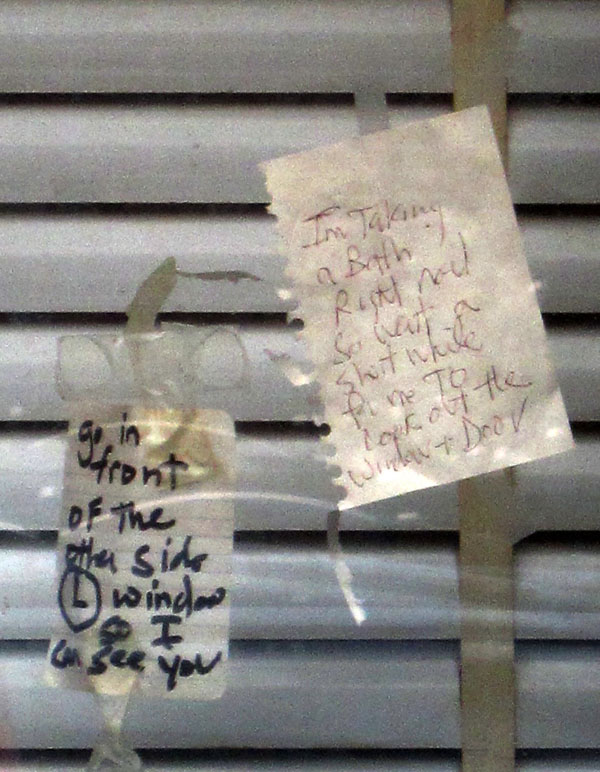 I'm Taking
a Bath
Right now
So wait a
short while
for me To
look out the
window + Door
go in
front
OF The
other side
L window
so I
can see you